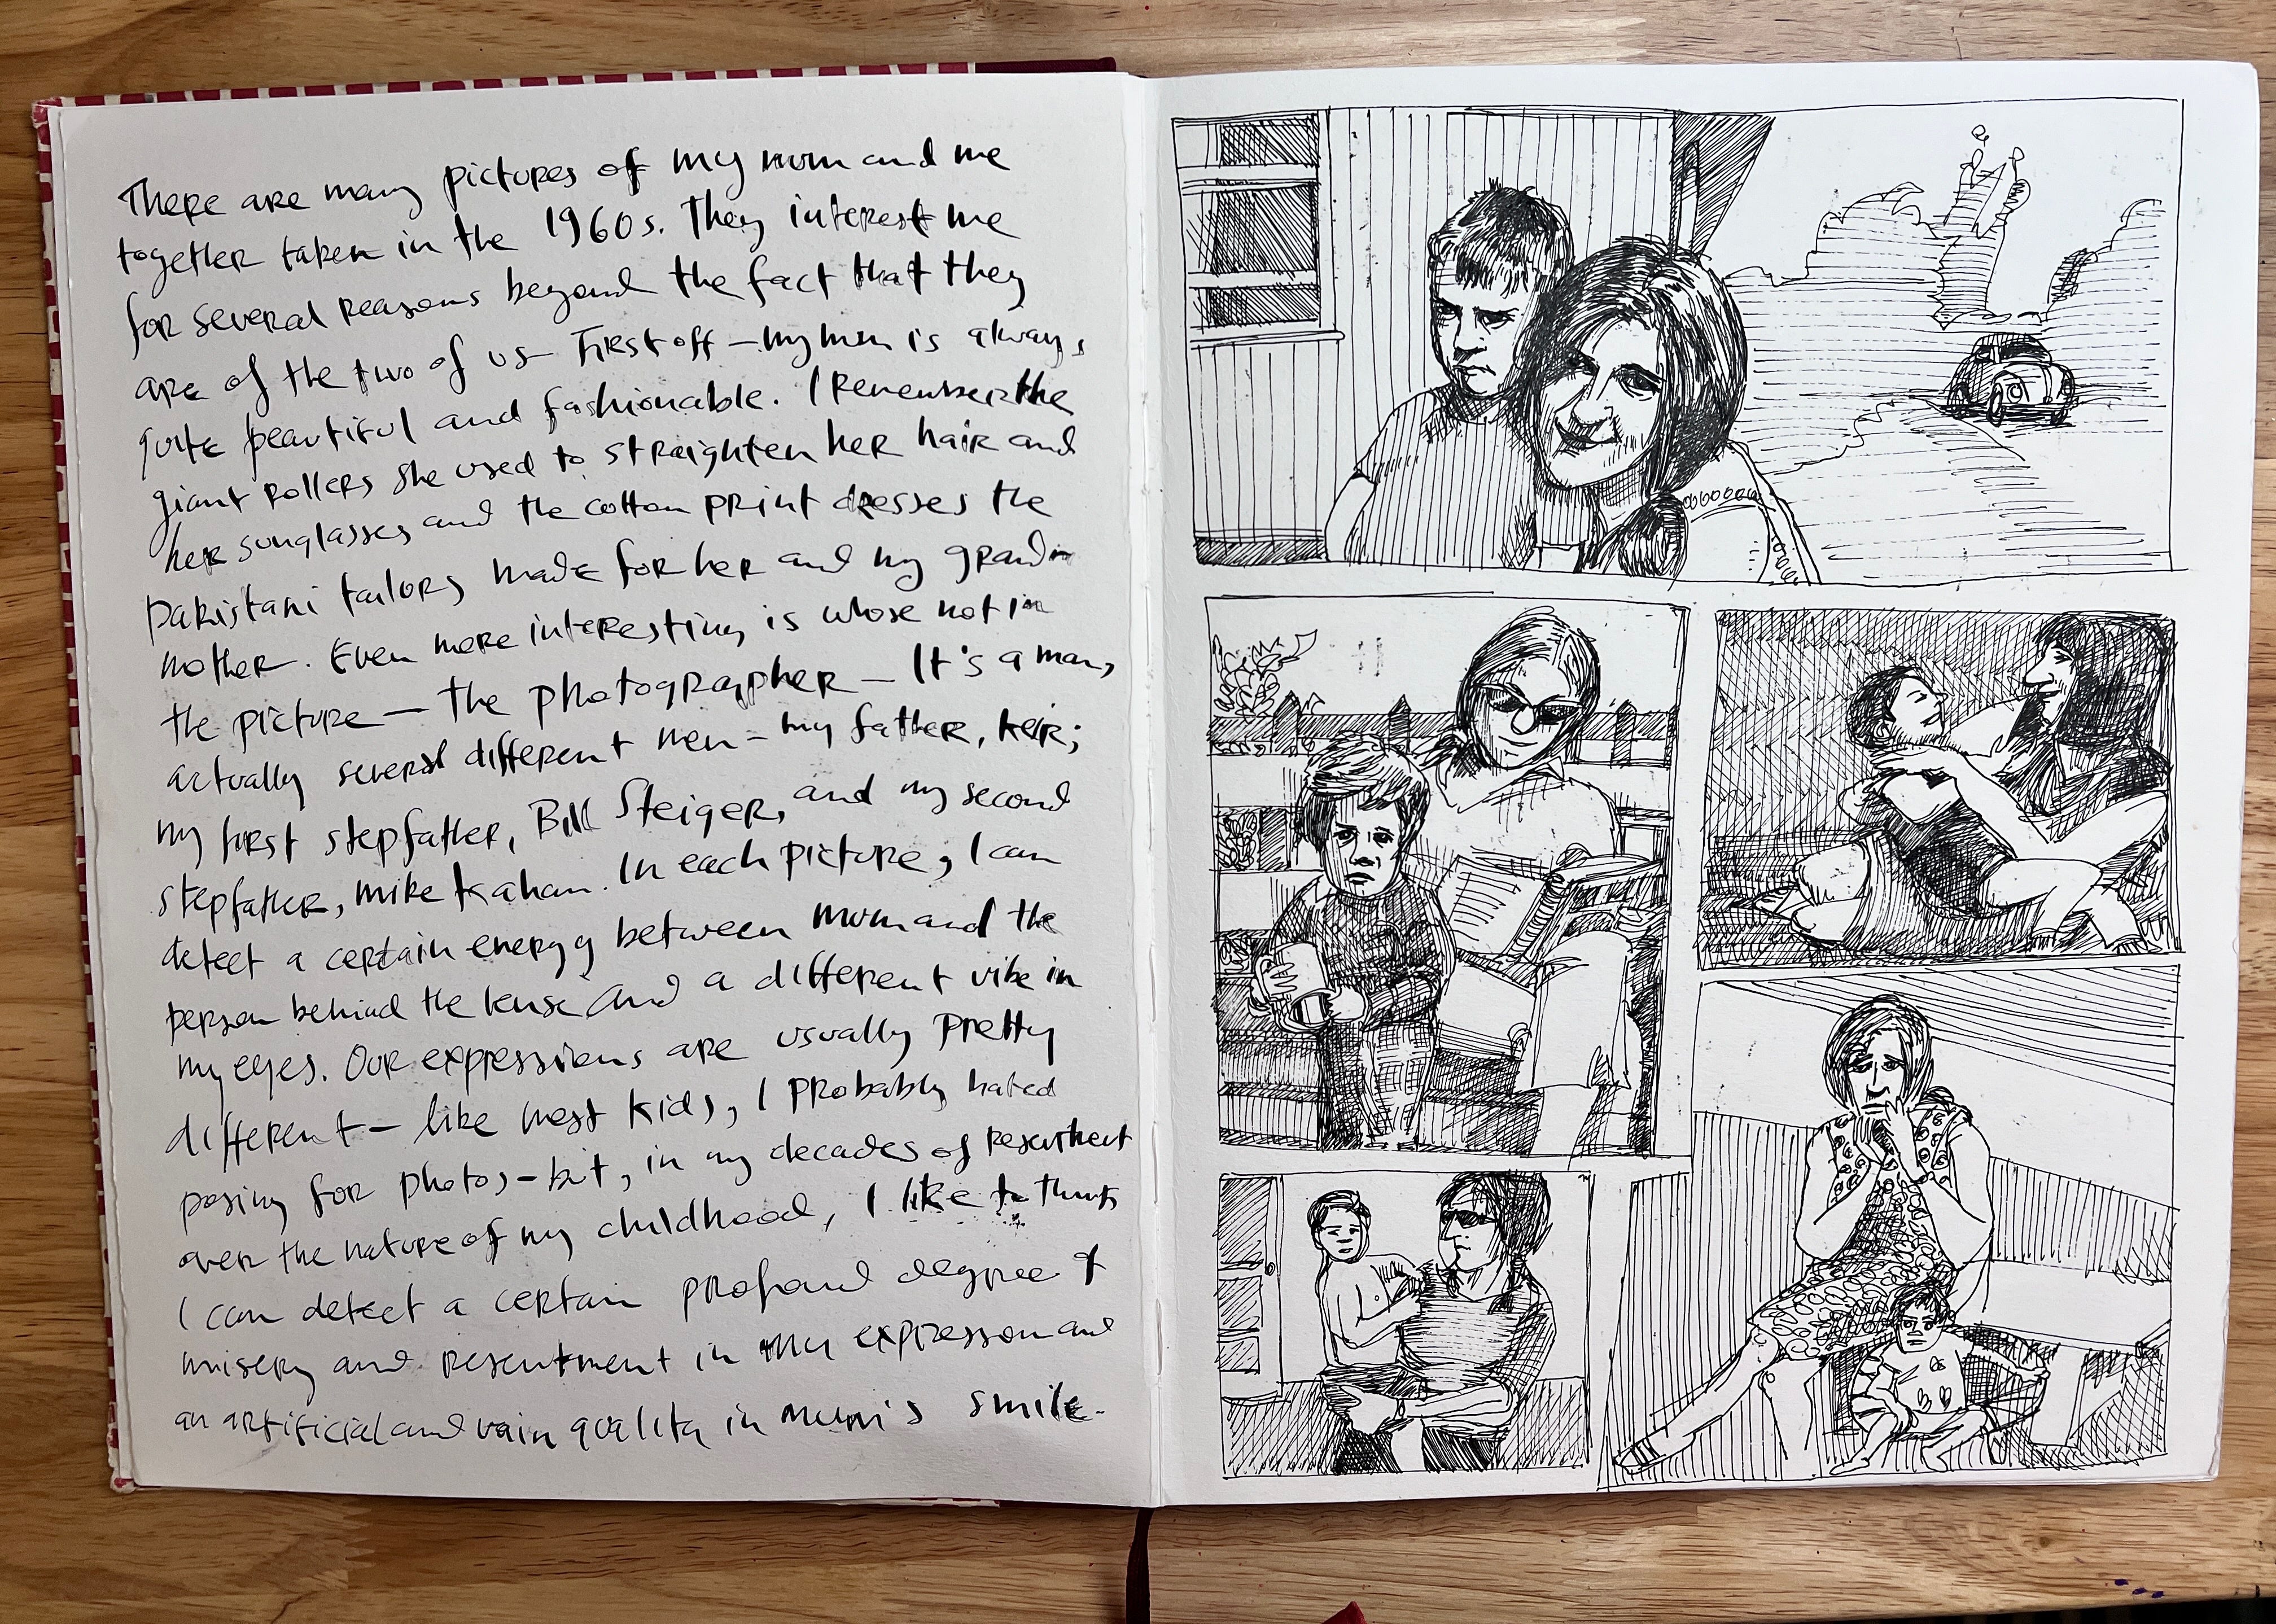 There are many pictures of my mum and me
together taken in the 1960s. They interest me
for several reasons beyond the fact that they
are of the two of us - First off - my mum is always
quite beautiful and fashionable. I remember the
giant rollers she used to straighten her hair and
her sunglasses and the cotton print dresses the
pakistani tailors made for her and my grand-
mother. Even more interesting is whose not in
the picture - the photographer - It's a man,
actually several different men - my father, Keir;
my first stepfather, Bill Steiger, and my second
stepfather, Mike Kahan. In each picture, I can
detect a certain energy between mum and the
person behind the lense and a different vibe in
my eyes. Our expressions are usually pretty
different - like most kids, I probably hated
posing for photos - but, in my decades of resentment
over the nature of my childhood, I like to think
I can detect a certain profound degree of
misery and resentment in my expression and
an artificial and vain quality in Mum's smile.